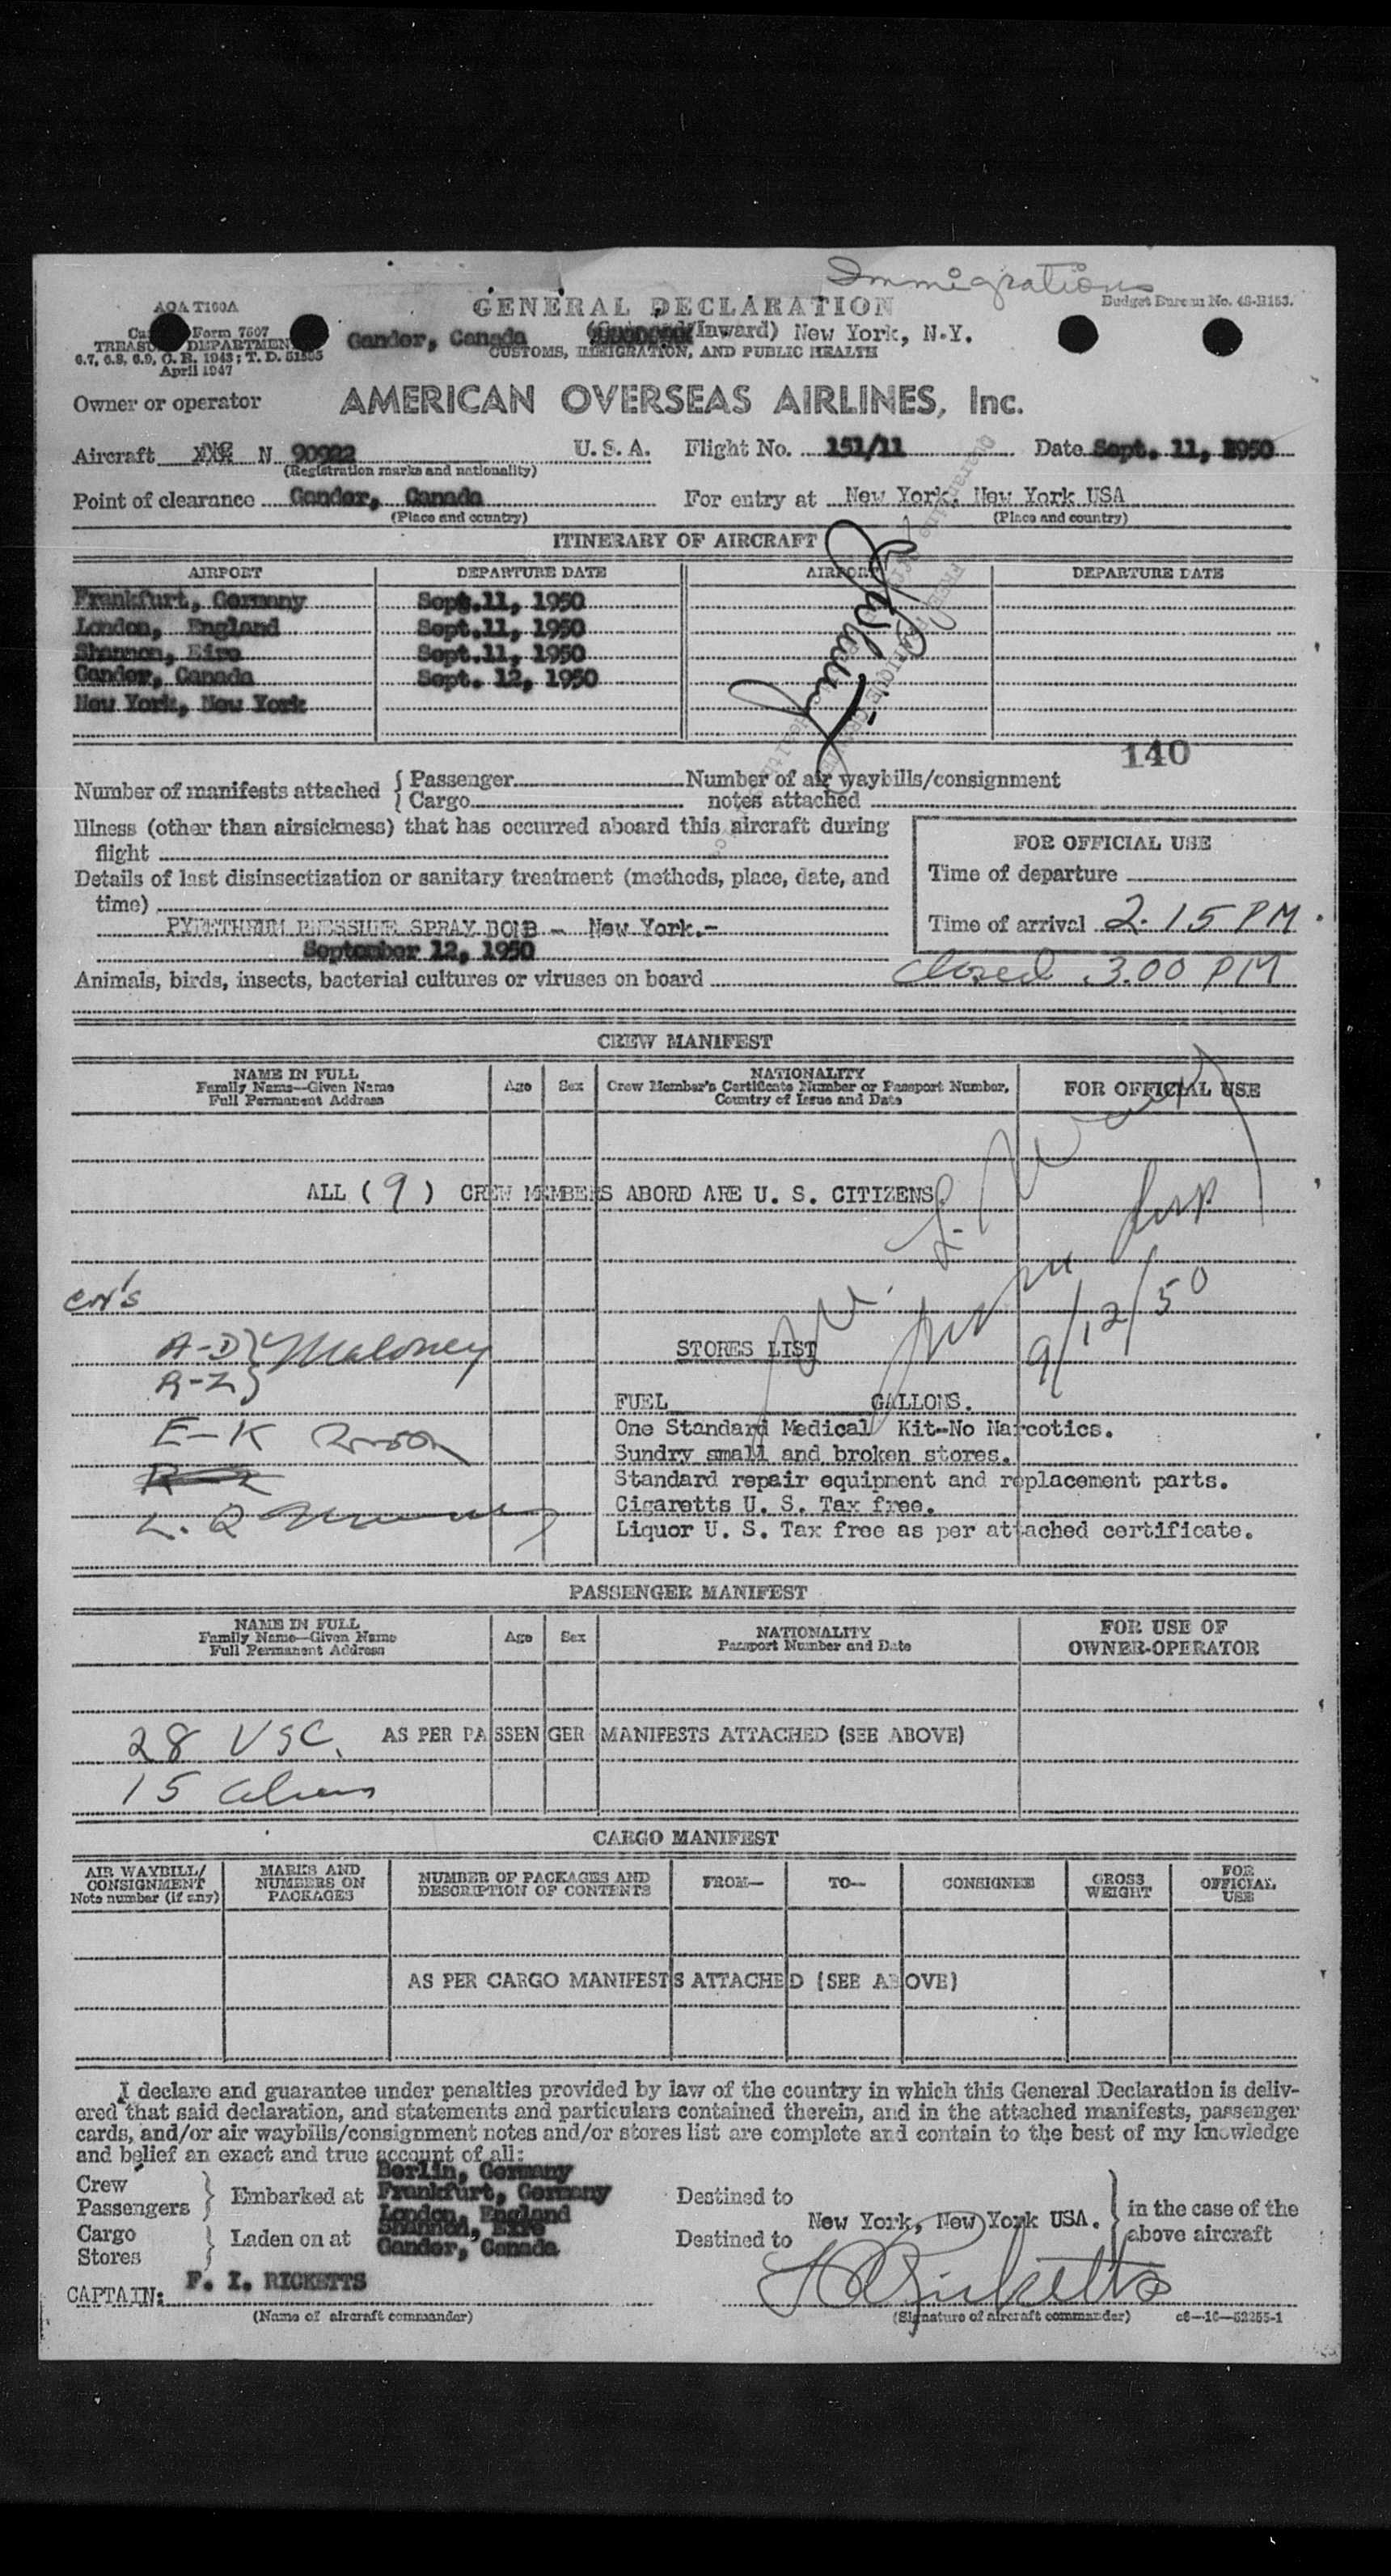 Immigrations
AOA T100A
GENERAL DECLARATION
Budget Bureau No. 48-R153.
Form 7507
Gander, Canada (Inward) New York, N.Y.
TREASURY DEPARTMENT
CUSTOMS, IMMIGRATION, AND PUBLIC HEALTH
6.7, 6.8, 6.9, C. R. 1943; T. D. 51585
April 1947
Owner or operator AMERICAN OVERSEAS AIRLINES, Inc.
Aircraft N 90922 U. S. A. Flight No. 151/11 Date Sept. 11, 1950
(Registration marks and nationality)
Point of clearance Gander, Canada For entry at New York, New York USA
(Place and country) (Place and country)
ITINERARY OF AIRCRAFT
AIRPORT DEPARTURE DATE AIRPORT DEPARTURE DATE
Frankfurt, Germany Sept.11, 1950
London, England Sept.11, 1950
Shannon, Eire Sept.11, 1950
Gander, Canada Sept. 12, 1950
New York, New York
140
Number of manifests attached { Passenger Number of air waybills/consignment
Cargo notes attached
Illness (other than airsickness) that has occurred aboard this aircraft during
flight
FOR OFFICIAL USE
Details of last disinsectization or sanitary treatment (methods, place, date, and
time)
Time of departure
PYRETHRUM PRESSURE SPRAY BOMB - New York.-
Time of arrival 2.15 PM.
September 12, 1950
Animals, birds, insects, bacterial cultures or viruses on board closed 3.00 PM
CREW MANIFEST
NAME IN FULL
Family Name—Given Name
Full Permanent Address
Age Sex
NATIONALITY
Crew Member's Certificate Number or Passport Number,
Country of Issue and Date
FOR OFFICIAL USE
ALL ( 9 ) CREW MEMBERS ABORD ARE U. S. CITIZENS
A-D } Maloney
R-Z }
9/12/50
STORES LIST
FUEL GALLONS.
E-K
One Standard Medical Kit--No Narcotics.
Sundry small and broken stores.
Standard repair equipment and replacement parts.
Cigaretts U. S. Tax free.
L. Q
Liquor U. S. Tax free as per attached certificate.
PASSENGER MANIFEST
NAME IN FULL
Family Name—Given Name
Full Permanent Address
Age Sex
NATIONALITY
Passport Number and Date
FOR USE OF
OWNER-OPERATOR
28 USC. AS PER PASSENGER MANIFESTS ATTACHED (SEE ABOVE)
15 aliens
CARGO MANIFEST
AIR WAYBILL/
CONSIGNMENT
Note number (if any)
MARKS AND
NUMBERS ON
PACKAGES
NUMBER OF PACKAGES AND
DESCRIPTION OF CONTENTS
FROM— TO— CONSIGNEE
GROSS
WEIGHT
FOR
OFFICIAL
USE
AS PER CARGO MANIFESTS ATTACHED (SEE ABOVE)
I declare and guarantee under penalties provided by law of the country in which this General Declaration is deliv-
ered that said declaration, and statements and particulars contained therein, and in the attached manifests, passenger
cards, and/or air waybills/consignment notes and/or stores list are complete and contain to the best of my knowledge
and belief an exact and true account of all:
Berlin, Germany
Crew
Passengers } Embarked at Frankfurt, Germany Destined to
London, England
New York, New York USA. } in the case of the
above aircraft
Cargo
Stores } Laden on at Shannon, Eire Destined to
Gander, Canada
CAPTAIN: F. I. RICKETTS
F I Ricketts
(Name of aircraft commander) (Signature of aircraft commander) c6—16—52255-1